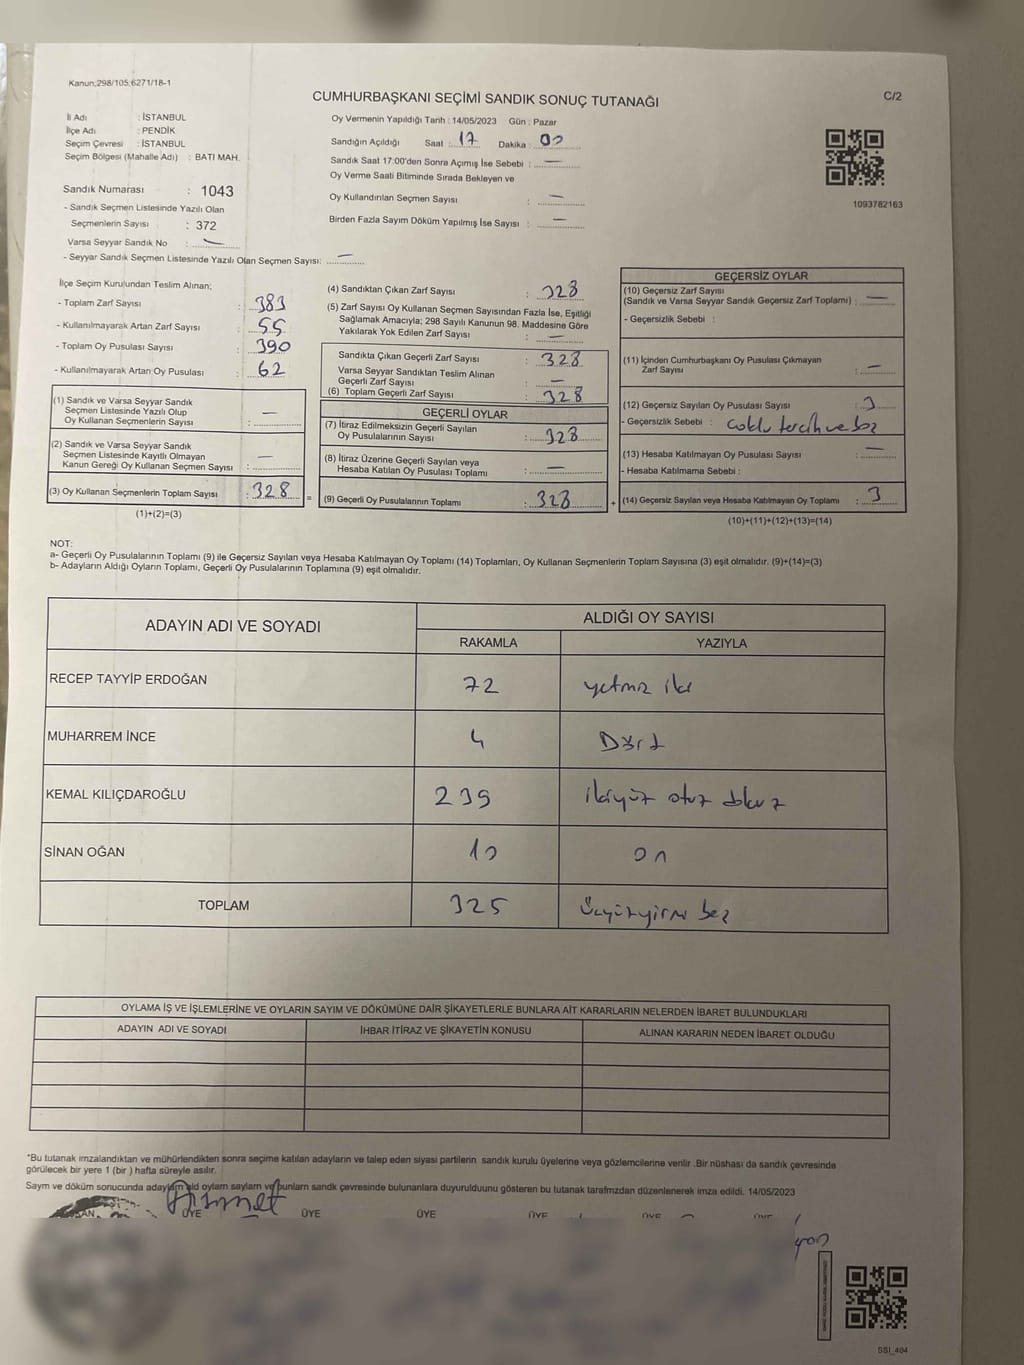 Kanun;298/105;6271/18-1
CUMHURBAŞKANI SEÇİMİ SANDIK SONUÇ TUTANAĞI
C/2
İl Adı : İSTANBUL
İlçe Adı : PENDİK
Seçim Çevresi : İSTANBUL
Seçim Bölgesi (Mahalle Adı) : BATI MAH.
Sandık Numarası : 1043
- Sandık Seçmen Listesinde Yazılı Olan
Seçmenlerin Sayısı : 372
Varsa Seyyar Sandık No : —
- Seyyar Sandık Seçmen Listesinde Yazılı Olan Seçmen Sayısı: —
Oy Vermenin Yapıldığı Tarih : 14/05/2023 Gün : Pazar
Sandığın Açıldığı Saat : 17 Dakika : 00
Sandık Saat 17:00'den Sonra Açımış İse Sebebi : —
Oy Verme Saati Bitiminde Sırada Bekleyen ve
Oy Kullandırılan Seçmen Sayısı : —
Birden Fazla Sayım Döküm Yapılmış İse Sayısı : —
1093782163
İlçe Seçim Kurulundan Teslim Alınan;
- Toplam Zarf Sayısı : 383
- Kullanılmayarak Artan Zarf Sayısı : 55
- Toplam Oy Pusulası Sayısı : 390
- Kullanılmayarak Artan Oy Pusulası : 62
(1) Sandık ve Varsa Seyyar Sandık
Seçmen Listesinde Yazılı Olup
Oy Kullanan Seçmenlerin Sayısı : —
(2) Sandık ve Varsa Seyyar Sandık
Seçmen Listesinde Kayıtlı Olmayan
Kanun Gereği Oy Kullanan Seçmen Sayısı : —
(3) Oy Kullanan Seçmenlerin Toplam Sayısı : 328 =
(1)+(2)=(3)
(4) Sandıktan Çıkan Zarf Sayısı : 328
(5) Zarf Sayısı Oy Kullanan Seçmen Sayısından Fazla İse, Eşitliği
Sağlamak Amacıyla; 298 Sayılı Kanunun 98. Maddesine Göre
Yakılarak Yok Edilen Zarf Sayısı : —
Sandıkta Çıkan Geçerli Zarf Sayısı : 328
Varsa Seyyar Sandıktan Teslim Alınan
Geçerli Zarf Sayısı : —
(6) Toplam Geçerli Zarf Sayısı : 328
GEÇERLİ OYLAR
(7) İtiraz Edilmeksizin Geçerli Sayılan
Oy Pusulalarının Sayısı : 328
(8) İtiraz Üzerine Geçerli Sayılan veya
Hesaba Katılan Oy Pusulası Toplamı : —
(9) Geçerli Oy Pusulalarının Toplamı : 328 +
GEÇERSİZ OYLAR
(10) Geçersiz Zarf Sayısı
(Sandık ve Varsa Seyyar Sandık Geçersiz Zarf Toplamı) : —
- Geçersizlik Sebebi :
(11) İçinden Cumhurbaşkanı Oy Pusulası Çıkmayan
Zarf Sayısı : —
(12) Geçersiz Sayılan Oy Pusulası Sayısı : 3
- Geçersizlik Sebebi : çoklu tercih ve boş
(13) Hesaba Katılmayan Oy Pusulası Sayısı : —
- Hesaba Katılmama Sebebi :
(14) Geçersiz Sayılan veya Hesaba Katılmayan Oy Toplamı : 3
(10)+(11)+(12)+(13)=(14)
NOT:
a- Geçerli Oy Pusulalarının Toplamı (9) ile Geçersiz Sayılan veya Hesaba Katılmayan Oy Toplamı (14) Toplamları, Oy Kullanan Seçmenlerin Toplam Sayısına (3) eşit olmalıdır. (9)+(14)=(3)
b- Adayların Aldığı Oyların Toplamı, Geçerli Oy Pusulalarının Toplamına (9) eşit olmalıdır.
ADAYIN ADI VE SOYADI
ALDIĞI OY SAYISI
RAKAMLA YAZIYLA
RECEP TAYYİP ERDOĞAN 72 yetmiş iki
MUHARREM İNCE 4 Dört
KEMAL KILIÇDAROĞLU 239 ikiyüz otuz dokuz
SİNAN OĞAN 10 on
TOPLAM 325 üçyüzyirmi beş
OYLAMA İŞ VE İŞLEMLERİNE VE OYLARIN SAYIM VE DÖKÜMÜNE DAİR ŞİKAYETLERLE BUNLARA AİT KARARLARIN NELERDEN İBARET BULUNDUKLARI
ADAYIN ADI VE SOYADI İHBAR İTİRAZ VE ŞİKAYETİN KONUSU ALINAN KARARIN NEDEN İBARET OLDUĞU
*Bu tutanak imzalandıktan ve mühürlendikten sonra seçime katılan adayların ve talep eden siyasi partilerin sandık kurulu üyelerine veya gözlemcilerine verilir .Bir nüshası da sandık çevresinde
görülecek bir yere 1 (bir ) hafta süreyle asılır.
Sayım ve döküm sonucunda oyların sandk çevresinde bulunanlara duyurulduunu gösteren bu tutanak tarafmzdan düzenlenerek imza edildi. 14/05/2023
Ahmet
ÜYE ÜYE ÜYE ÜYE ÜYE
SSI_404